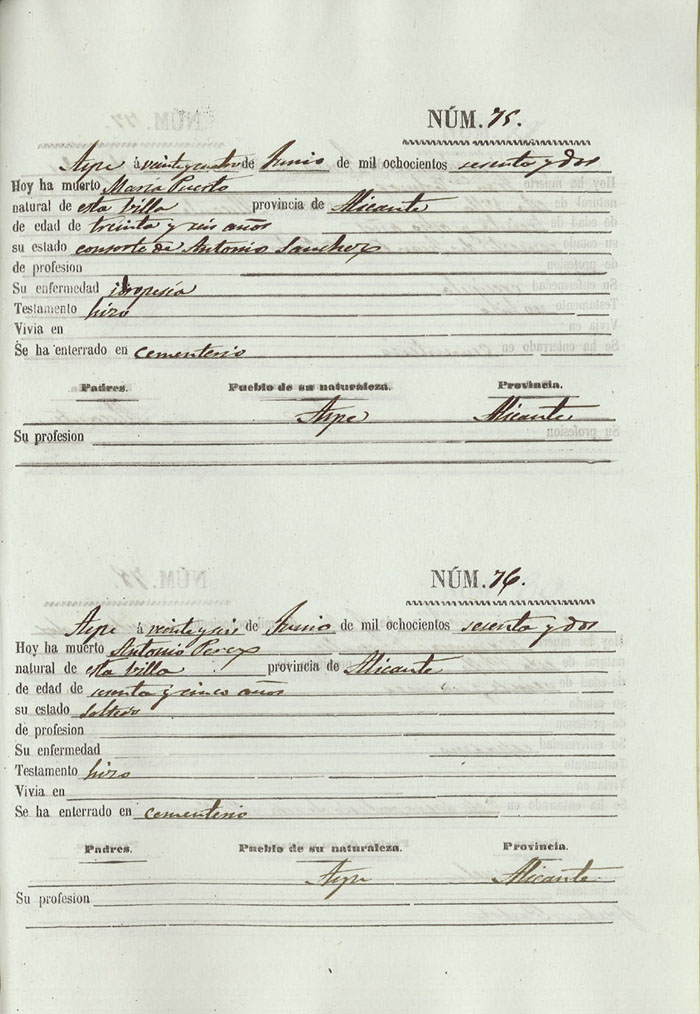 NÚM. 75.
Aspe á veinte y cuatro de Junio de mil ochocientos sesenta y dos
Hoy ha muerto Maria Puerto
natural de esta Villa provincia de Alicante
de edad de treinta y seis años
su estado consorte de Antonio Sanchez
de profesion
Su enfermedad idropesía
Testamento hizo
Vivia en
Se ha enterrado en cementerio
Padres. Pueblo de su naturaleza. Provincia.
Aspe Alicante
Su profesion
NÚM. 76.
Aspe á veinte y seis de Junio de mil ochocientos sesenta y dos
Hoy ha muerto Antonio Perez
natural de esta Villa provincia de Alicante
de edad de sesenta y cinco años
su estado Soltero
de profesion
Su enfermedad
Testamento hizo
Vivia en
Se ha enterrado en cementerio
Padres. Pueblo de su naturaleza. Provincia.
Aspe Alicante
Su profesion